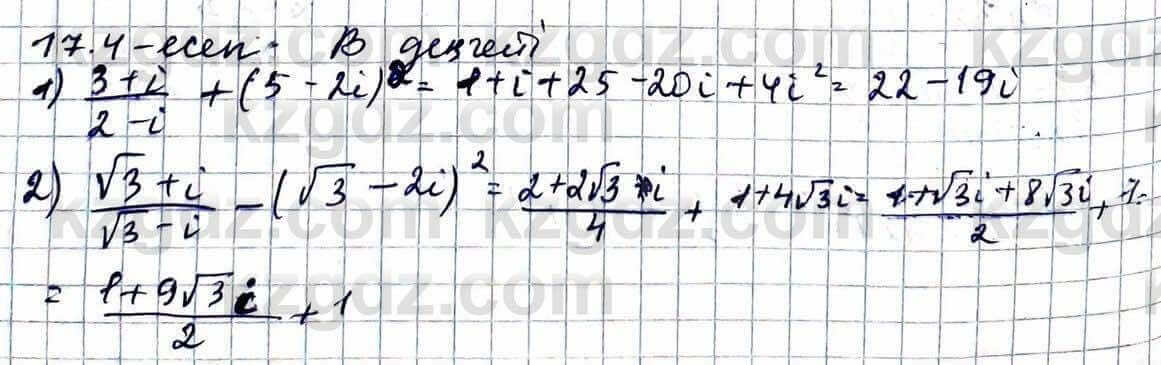 17.4-есеп. В деңгейі
1) (3+i)/(2-i) + (5-2i)² = 1+i+25-20i+4i² = 22-19i
2) (√3+i)/(√3-i) - (√3-2i)² = (2+2√3i)/4 + 1+4√3i = (1+√3i+8√3i)/2 + 1 =
= (1+9√3i)/2 + 1
kzgdz.com